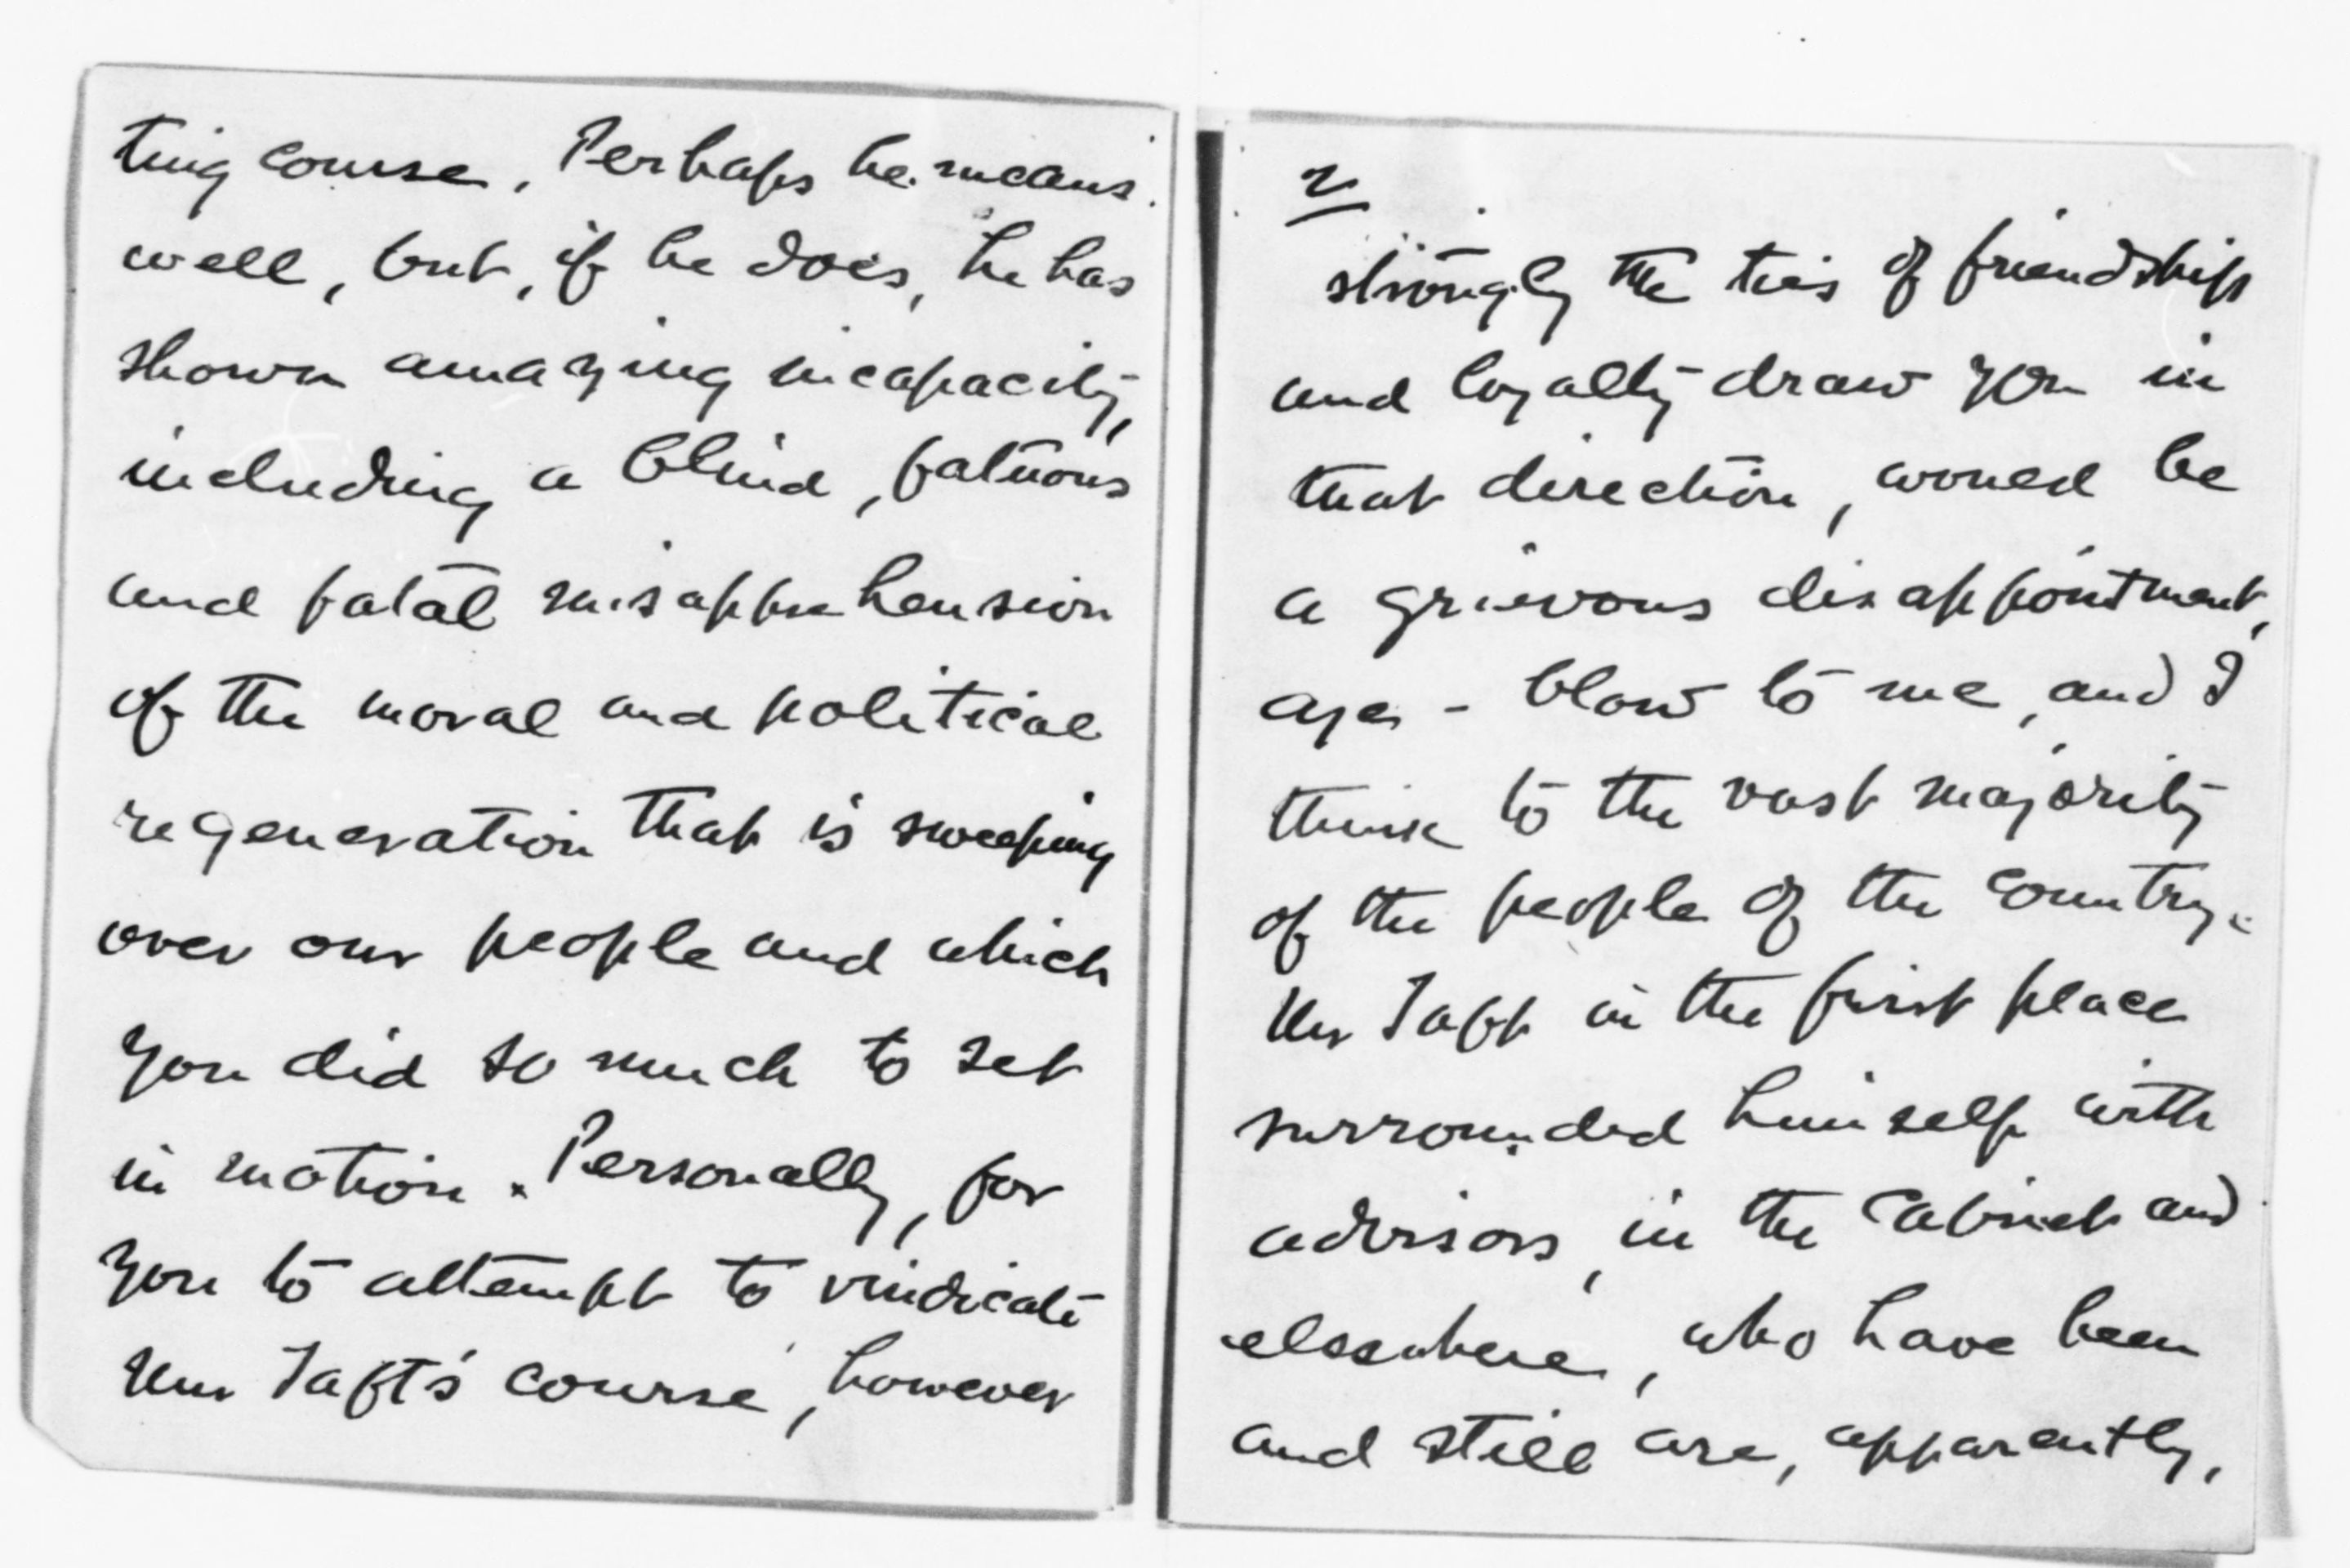 ting course. Perhaps he means
well, but, if he does, he has
shown amazing incapacity,
including a blind, fatuous
and fatal misapprehension
of the moral and political
regeneration that is sweeping
over our people and which
you did so much to set
in motion. Personally, for
you to attempt to vindicate
Mr Taft's course, however
2/
strongly the ties of friendship
and loyalty draw you in
that direction, would be
a grievous disappointment,
aye - blow to me, and I
think to the vast majority
of the people of the country.
Mr Taft in the first place
surrounded himself with
advisors, in the Cabinet and
elsewhere, who have been
and still are, apparently,